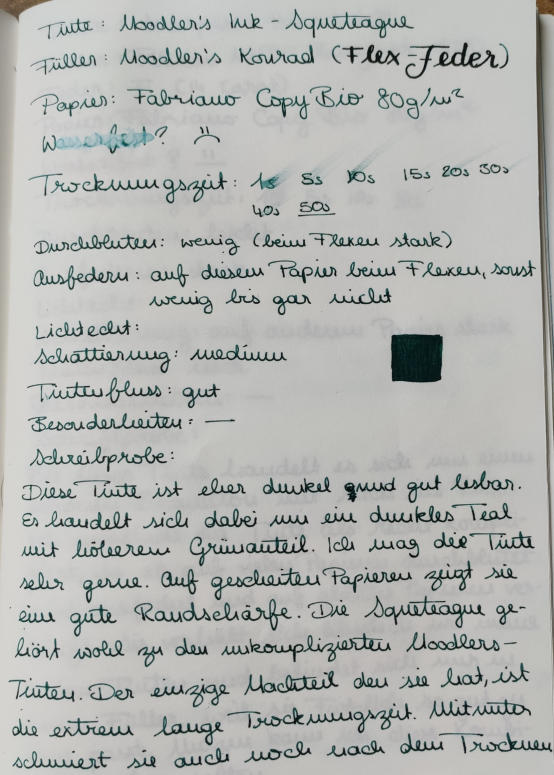 Tinte: Noodler's Ink - Squeteague
Füller: Noodler's Konrad (Flex-Feder)
Papier: Fabriano Copy Bio 80g/m²
Wasserfest? ☹
Trocknungszeit: 1s 5s 10s 15s 20s 30s
40s 50s
Durchbluten: wenig (beim Flexen stark)
Ausfedern: auf diesem Papier beim Flexen, sonst
wenig bis gar nicht
Lichtecht:
Schattierung: medium
Tintenfluss: gut
Besonderheiten: —
Schreibprobe:
Diese Tinte ist eher dunkel und gut lesbar.
Es handelt sich dabei um ein dunkles Teal
mit höherem Grünanteil. Ich mag die Tinte
sehr gerne. Auf gescheiten Papieren zeigt sie
eine gute Randschärfe. Die Squeteague ge-
hört wohl zu den unkomplizierten Noodlers-
Tinten. Der einzige Nachteil den sie hat, ist
die extrem lange Trocknungszeit. Mitunter
schmiert sie auch noch nach dem Trocknen